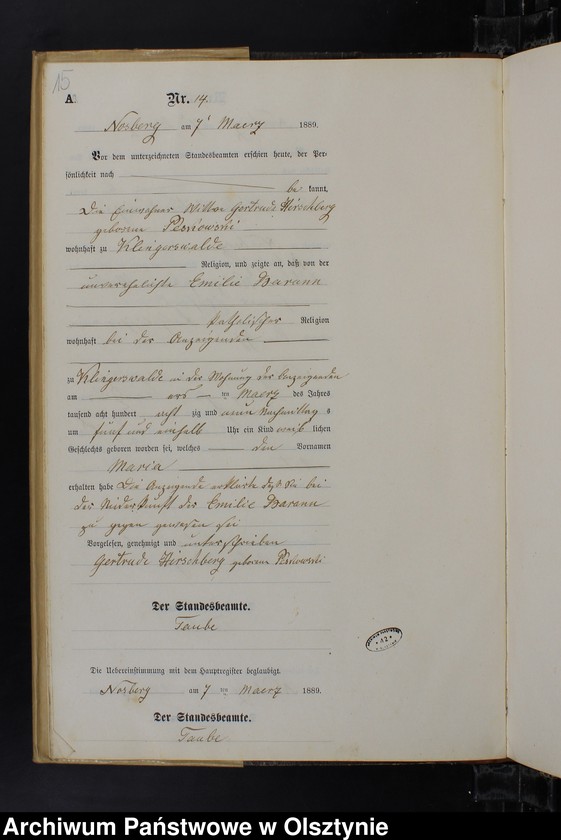 15
A.
Nr. 14.
Nosberg am 7t Maerz 1889.
Vor dem unterzeichneten Standesbeamten erschien heute, der Per-
sönlichkeit nach
be kannt,
die Einwohner Wittwe Gertrude Hirschberg
geborene
wohnhaft zu Klingerswalde
Religion, und zeigte an, daß von der
unverehelichte Emilie Barann
katholischer Religion
wohnhaft bei der Anzeigenden
zu Klingerswalde in der Wohnung der Anzeigenden
am ers ten Maerz des Jahres
tausend acht hundert acht zig und neun Nachmittag s
um fünf und einhalb Uhr ein Kind weib lichen
Geschlechts geboren worden sei, welches den Vornamen
Maria
erhalten habe Die Anzeigende erklärte daß sie bei
der Niederkunft der Emilie Barann
zu gegen gewesen sei
Vorgelesen, genehmigt und unterschrieben
Gertrude Hirschberg geborene
Der Standesbeamte.
Taube
Die Uebereinstimmung mit dem Hauptregister beglaubigt.
Nosberg am 7 ten Maerz 1889.
Der Standesbeamte.
Taube
12
Archiwum Państwowe w Olsztynie